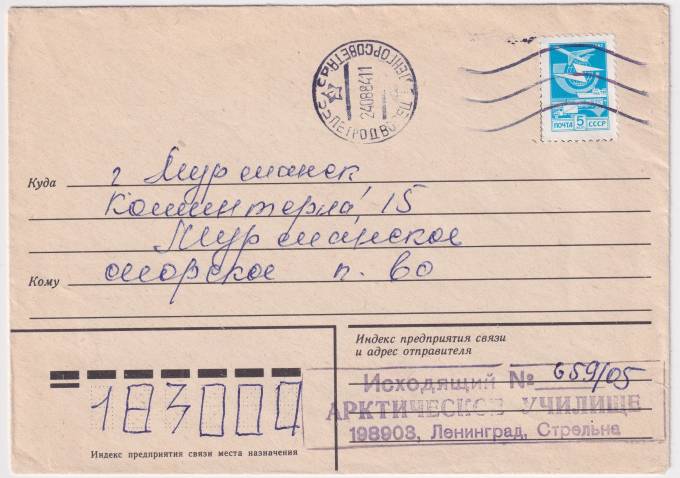 СССР ПЕТРОДВОРЕЦ ЛЕНГОРСОВЕТА
24088411
ПОЧТА 5 СССР
Куда г Мурманск
Коминтерна 15
Мурманское
Кому морское п. во
Индекс предприятия связи
и адрес отправителя
Исходящий № 659/05
АРКТИЧЕСКОЕ УЧИЛИЩЕ
198903, Ленинград, Стрельна
183000
Индекс предприятия связи места назначения